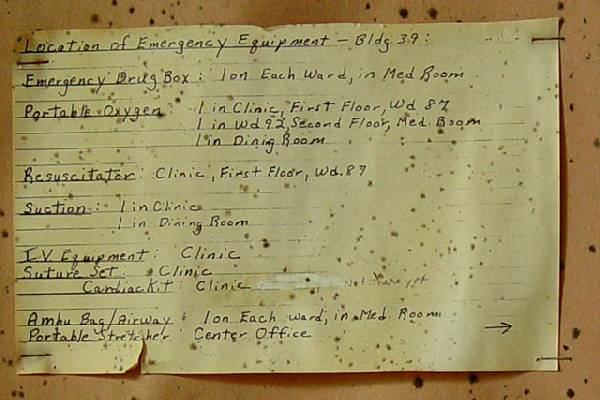 Location of Emergency Equipment - Bldg 39:
Emergency Drug Box: 1 on Each Ward, in Med Room
Portable Oxygen: 1 in Clinic, First Floor, Wd 87
1 in Wd 92, Second Floor, Med. Room
1 in Dinig Room
Resuscitator: Clinic, First Floor, Wd. 87
Suction: 1 in Clinic
1 in Dining Room
I.V. Equipment: Clinic
Suture Set: Clinic
Cardiac Kit: Clinic Not there yet
Ambu Bag/Airway: 1 on Each Ward, in Med. Room
Portable Stretcher: Center Office →